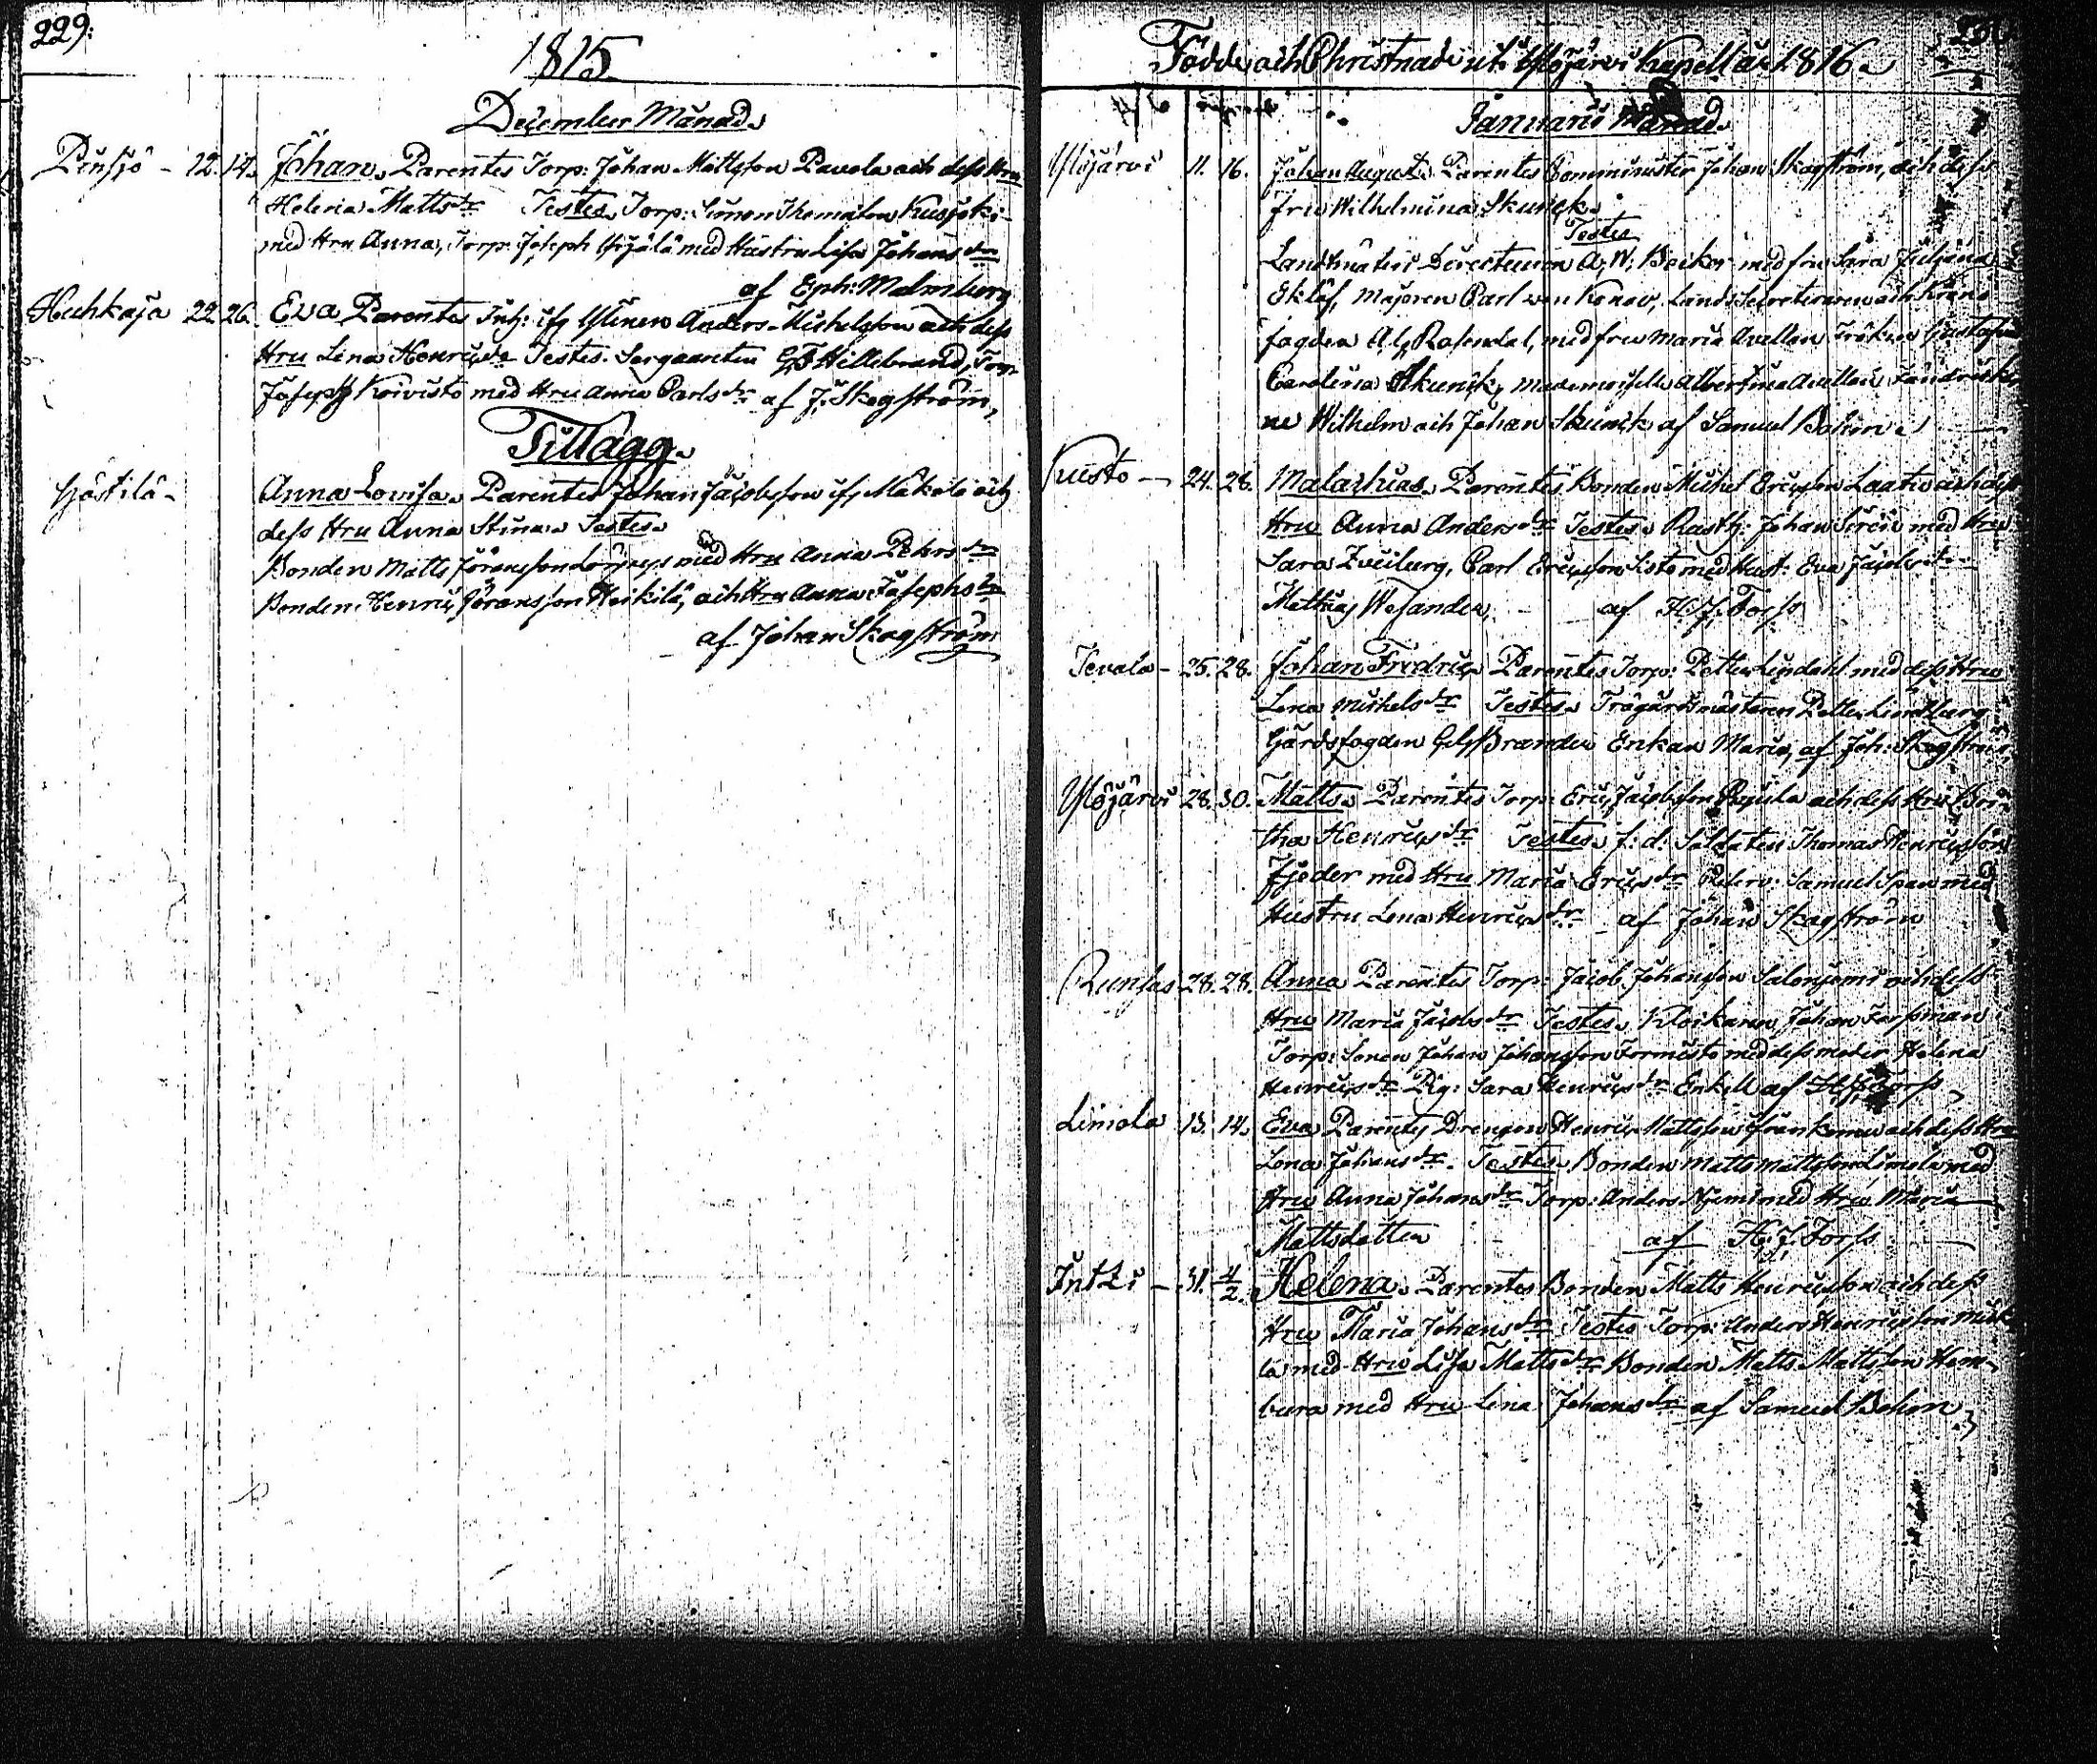 229.
1815
December Månad.
Pensjö - 12. 14. Johan. Parentes Torp: Johan Mattsson Pavola och dess Hru
Helena Matts dr Testes. Torp: Simon Thomasson
med Hru Anna, Torp: Joseph med Hustru Lisa Johans dr
af Eph: Malmberg
Huhkaja 22. 26. Eva Parentes Inh: ifr Ylinen Anders Michelsson och dess
Hru Lena Henrics dr Testes. Sergeanten Hillebrand, Torp:
Joseph Koivisto med Hru Anna Carls dr af J. Skogström,
Tillägg.
Anna Lovisa. Parentes Johan Jacobsson ifr Mäkelä och
dess Hru Anna Stina. Testes.
Bonden Matts Jöransson med Hru Anna Pehrs dr
Bonden Henric Göransson Heikilä, och Hru Anna Josephs dr
af Johan Skogström
Födde och Christnade uti Ylöjärvi Kapell år 1816.
Januarii Månad.
Ylöjärvi 11. 16. Johan August. Parentes Comminister Johan Skogström, och dess
fru Wilhelmina Skunck.
Testes
Landtmäteri Directeuren A. W. Becker med fru Sara Juliana
Eklöf, Majoren Carl von Konow, Lands Secreteraren och Krono
fogden Rosendal, med fru Maria Avellan Fröken Gustafva
Carolina Skunck, mademoiselle Albertina Avellan
ne Wilhelm och Johan Skunck af Samuel Bohm
Kuusto - 24. 28. Malachias. Parentes Bonden Michel Ericsson Laatio och dess
Hru Anna Anders dr Testes. Rusth: Johan Sirein med Hru
Sara Carl Ericsson Sisto med Hust: Eva Jacobs dr
Mathias Wesander, - af H. J. Forss
Tevala - 25. 28. Johan Fredric Parentes Torp: Petter Lindahl med dess Hru
Lena Michels dr Testes. Trägårdsmästaren Petter Lindberg
Gårdsfogden Brander Enkan Maria, af Joh: Skogström,
Ylöjärvi 28. 30. Matts. Parentes Torp: Eric Jacobsson och dess Hru Bri-
tha Henrics dr Testes. f: d: Soldaten Thomas Henricsson
Fjeder med Hru Maria Erics dr Reserv: Samuel Span med
Hustru Lena Henrics dr af Johan Skogström
28. 28. Anna Parentes Torp: Jacob Johansson Salonjemi och dess
Hru Maria Jacobs dr Testes. Klockaren Johan Forssman
Torp: Sonen Johan Johansson Tormisto med dess moder Helena
Henrics dr Pig: Sara Henrics dr Enkell af H. J. Forss
Limola 13. 14. Eva Parentes Drengen Henric Mattsson och dess Hru
Lena Johans dr. Testes. Bonden Matts Mattsson Limola med
Hru Anna Johans dr Torp: Anders Njemi med Hru Maria
Mattsdotter af H. J. Forss
Intti - 31. 4/2. Helena. Parentes Bonden Matts Henricsson och dess
Hru Maria Johans dr Testes Torp: Anders Henricsson
la med Hru Lisa Matts dr Bonden Matts Mattsson Hem-
bura med Hru Lena Johans dr af Samuel Bohm